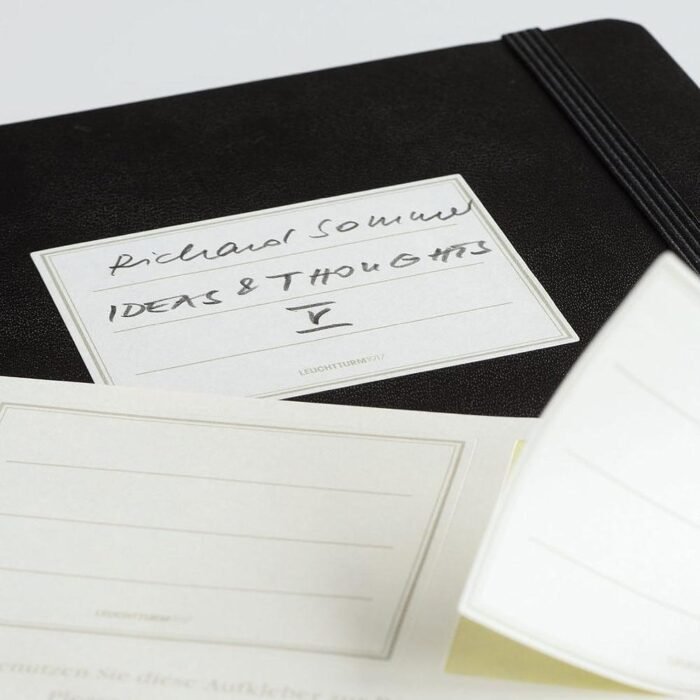 Richard Sommer
IDEAS & THOUGHTS
V
LEUCHTTURM1917
LEUCHTTURM1917
enutzen Sie diese Aufkleber zur
Please